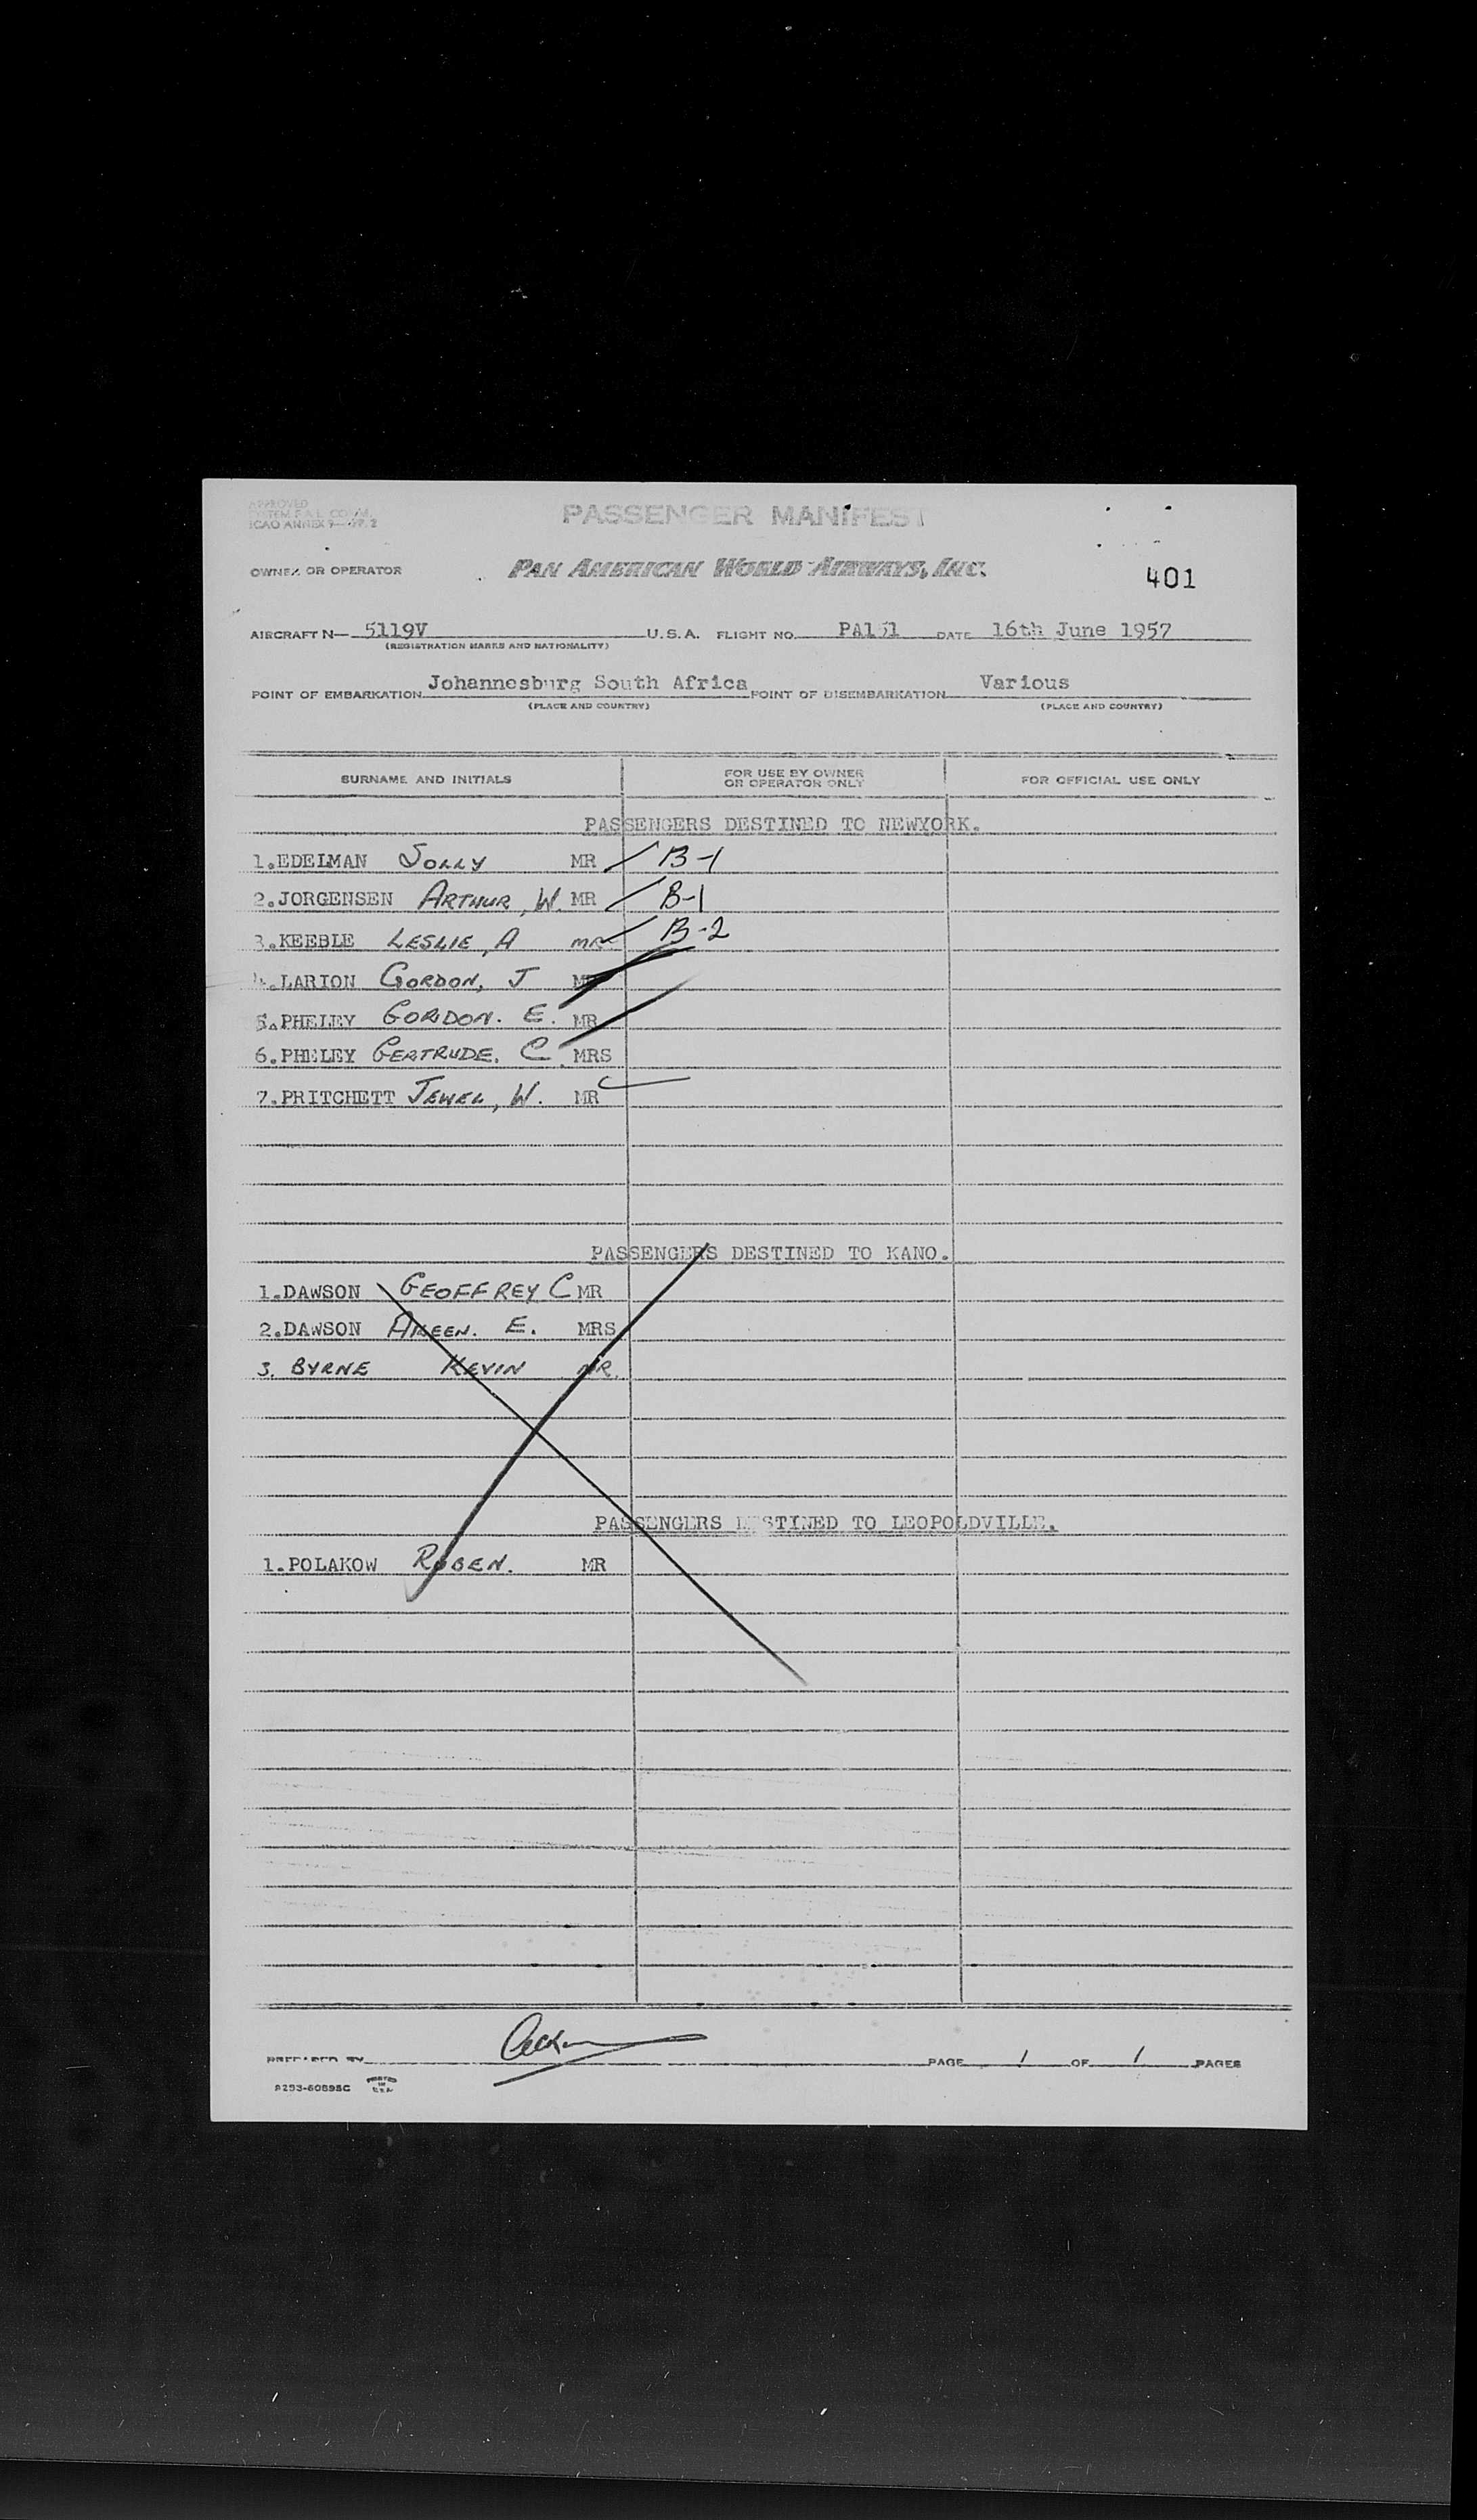 APPROVED
SYSTEM F.A.L. COMM.
ICAO ANNEX 9—
PASSENGER MANIFEST
OWNER OR OPERATOR PAN AMERICAN WORLD AIRWAYS, INC. 401
AIRCRAFT N— 5119V U.S.A. FLIGHT NO. PA151 DATE 16th June 1957
(REGISTRATION MARKS AND NATIONALITY)
POINT OF EMBARKATION Johannesburg South Africa POINT OF DISEMBARKATION Various
(PLACE AND COUNTRY) (PLACE AND COUNTRY)
SURNAME AND INITIALS FOR USE BY OWNER OR OPERATOR ONLY FOR OFFICIAL USE ONLY
PASSENGERS DESTINED TO NEWYORK.
1.EDELMAN SOLLY MR B-1
2.JORGENSEN ARTHUR, W. MR B-1
3.KEEBLE LESLIE, A MR B-2
4.LARION GORDON, J MR
5.PHELEY GORDON. E. MR
6.PHELEY GERTRUDE. C. MRS
7.PRITCHETT JEWEL, W. MR
PASSENGERS DESTINED TO KANO.
1.DAWSON GEOFFREY C MR
2.DAWSON E. MRS
3. BYRNE KEVIN MR.
PASSENGERS DESTINED TO LEOPOLDVILLE.
1.POLAKOW RUBEN. MR
PREPARED BY PAGE 1 OF 1 PAGES
PRINTED IN U.S.A.